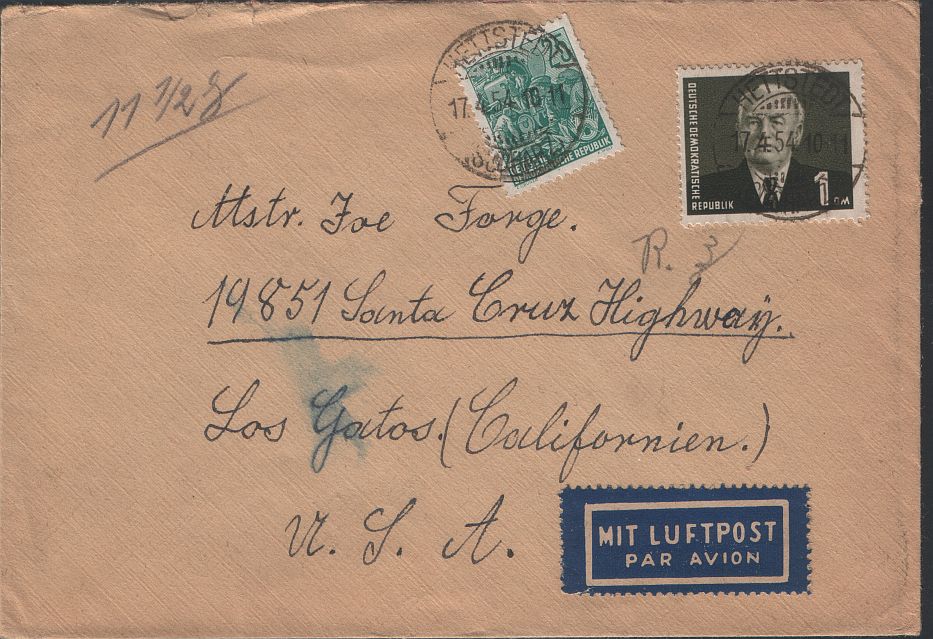 11 1/2 g
HETTSTEDT
17.4.54 10-11
25
DEUTSCHE DEMOKRATISCHE REPUBLIK
HETTSTEDT
17.4.54 10-11
DEUTSCHE DEMOKRATISCHE
REPUBLIK
1 DM
Mstr. Joe Forge.
R. 3
19851 Santa Cruz Highwaÿ.
Los Gatos. (Californien.)
U. S. A.
MIT LUFTPOST
PAR AVION